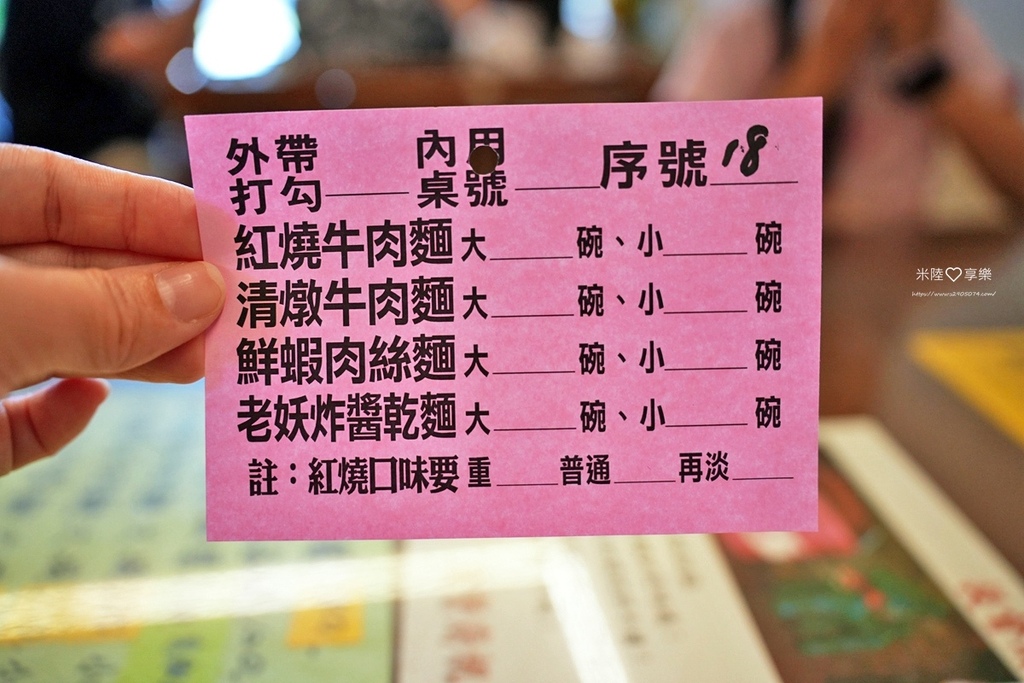 外帶 內用 序號 18
打勾 桌號
紅燒牛肉麵 大____碗、小____碗
清燉牛肉麵 大____碗、小____碗
鮮蝦肉絲麵 大____碗、小____碗
老妖炸醬乾麵 大____碗、小____碗
註：紅燒口味要 重____ 普通____ 再淡____
米陸♡享樂